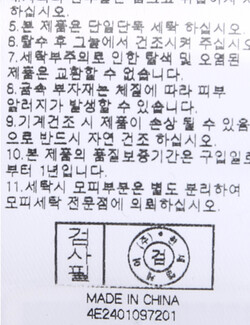 하십시오.
5.본 제품은 단일단독 세탁 하십시오.
6.탈수 후 그늘에서 건조시켜 주십시오
7.세탁부주의로 인한 탈색 및 오염된
제품은 교환할 수 없습니다.
8.금속 부자재는 체질에 따라 피부
알러지가 발생할 수 있습니다.
9.기계건조 시 제품이 손상 될 수 있음
으로 반드시 자연 건조 하십시오.
10.본 제품의 품질보증기간은 구입일로
부터 1년입니다.
11.세탁시 모피부분은 별도 분리하여
모피세탁 전문점에 의뢰하십시오.
검사필
검
MADE IN CHINA
4E2401097201